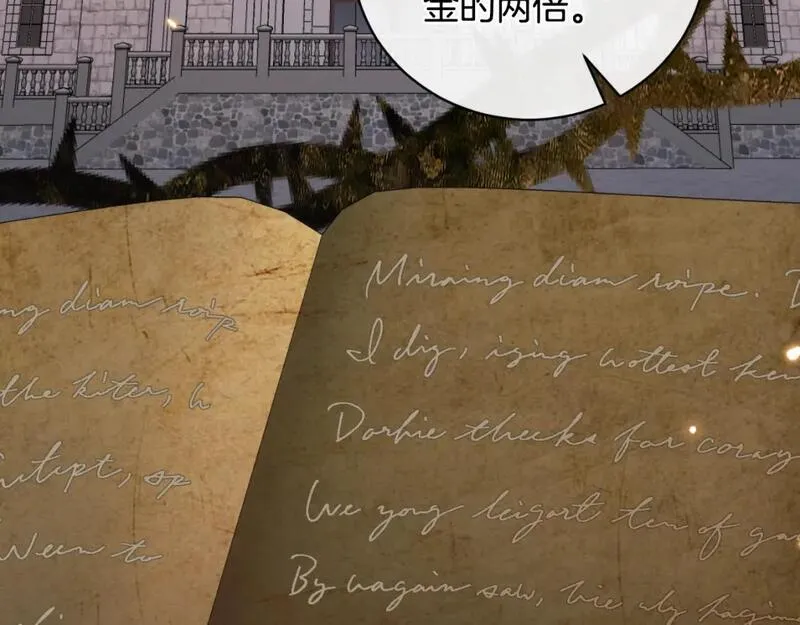 金的两倍。
ng diam roip
the kiter, h
sp
Ween to
Miraing diam roipe.
I dig, ising wottest
Dorhie thecks for coray
We yong leigort ten of
By wagain saw, hie